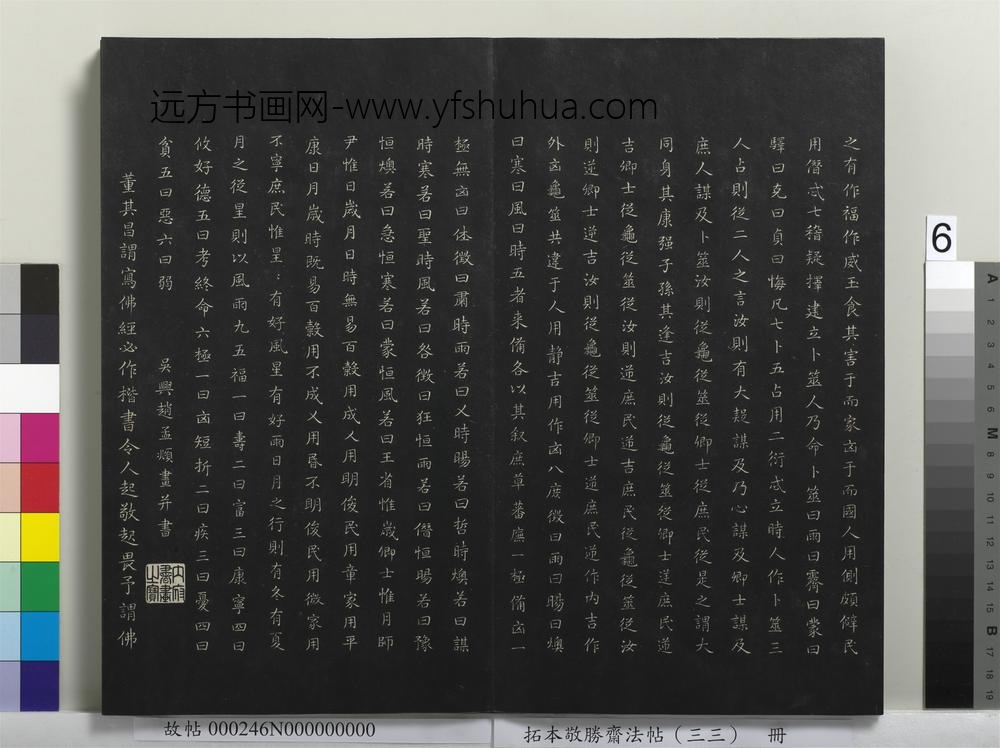 远方书画网-www.yfshuhua.com
之有作福作威玉食其害于而家凶于而國人用側頗僻民
用僭忒七稽疑擇建立卜筮人乃命卜筮曰雨曰霽曰蒙曰
驛曰克曰貞曰悔凡七卜五占用二衍忒立時人作卜筮三
人占則從二人之言汝則有大疑謀及乃心謀及卿士謀及
庶人謀及卜筮汝則從龜從筮從卿士從庶民從是之謂大
同身其康强子孫其逢吉汝則從龜從筮從卿士逆庶民逆
吉卿士從龜從筮從汝則逆庶民逆吉庶民從龜從筮從汝
則逆卿士逆吉汝則從龜從筮從卿士逆庶民逆作內吉作
外凶龜筮共違于人用靜吉用作凶八庶徵曰雨曰暘曰燠
曰寒曰風曰時五者来備各以其叙庶草蕃廡一極備凶一
極無凶曰休徵曰肅時雨若曰乂時暘若曰哲時燠若曰謀
時寒若曰聖時風若曰咎徵曰狂恒雨若曰僭恒暘若曰豫
恒燠若曰急恒寒若曰蒙恒風若曰王省惟歲卿士惟月師
尹惟日歲月日時無易百穀用成乂用明俊民用章家用平
康日月歲時既易百穀用不成乂用昏不明俊民用微家用
不寧庶民惟星:有好風星有好雨日月之行則有冬有夏
月之從星則以風雨九五福一曰壽二曰富三曰康寧四曰
攸好德五曰考終命六極一曰凶短折二曰疾三曰憂四曰
貧五曰惡六曰弱 吳興趙孟頫畫并書
董其昌謂寫佛經必作楷書令人起敬起畏予謂佛
故帖 000246N000000000
拓本敬勝齋法帖(三三) 冊
6
A 1 2 3 4 5 6 M 8 9 10 11 12 13 14 15 B 17 18 19